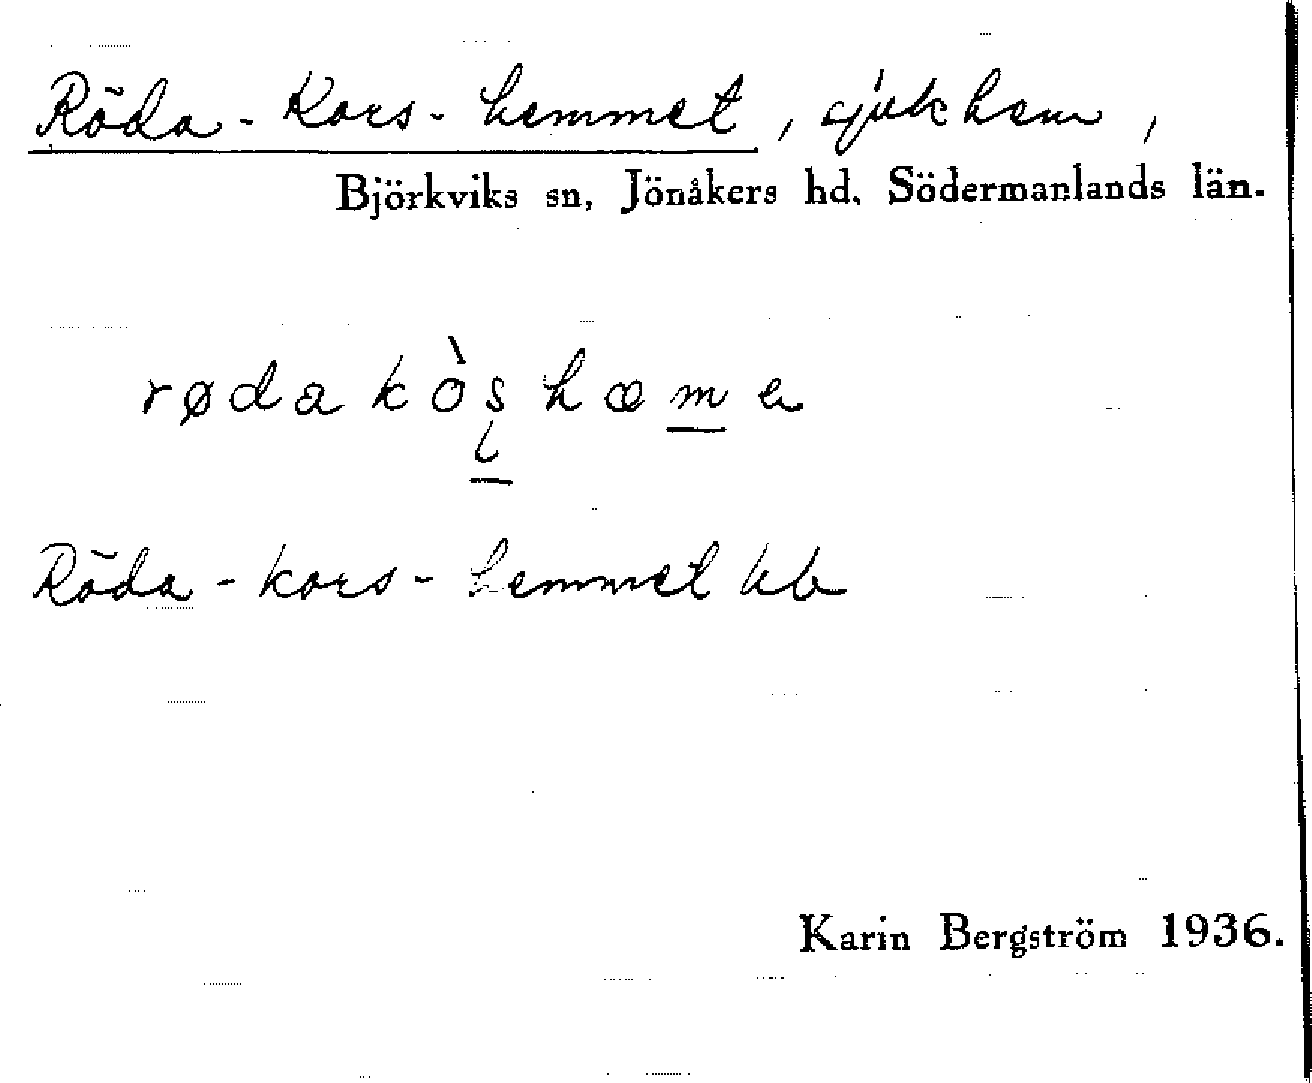 Röda-Kors-hemmet, sjukhem,
Björkviks sn, Jönåkers hd, Södermanlands län.
rødakòʂhæmə
Röda-kors-hemmet kb
Karin Bergström 1936.